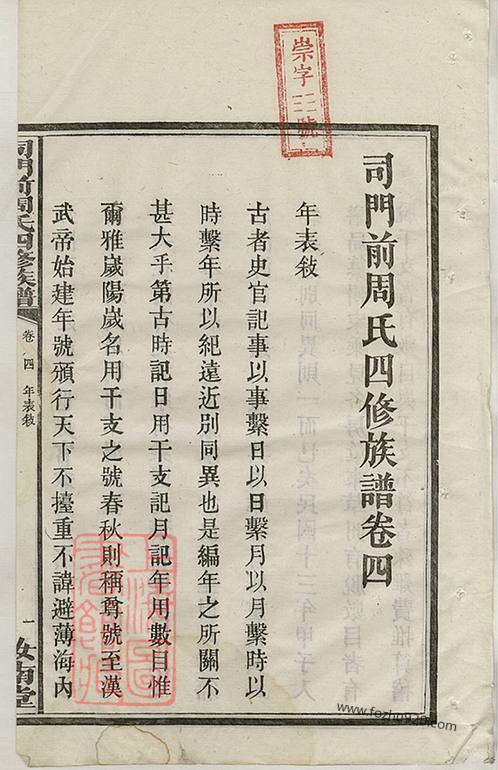 崇字三號
司門前周氏四修族譜卷四
年表敘
古者史官記事以事繫日以日繫月以月繫時以
時繫年所以紀遠近別同異也是編年之所關不
甚大乎第古時記日用干支記月記年用數目惟
爾雅歲陽歲名用干支之號春秋則稱尊號至漢
武帝始建年號頒行天下不擡重不諱避薄海內
司門前周氏四修族譜
卷四
年表敘
一
汝南堂
www.fozhp920.com